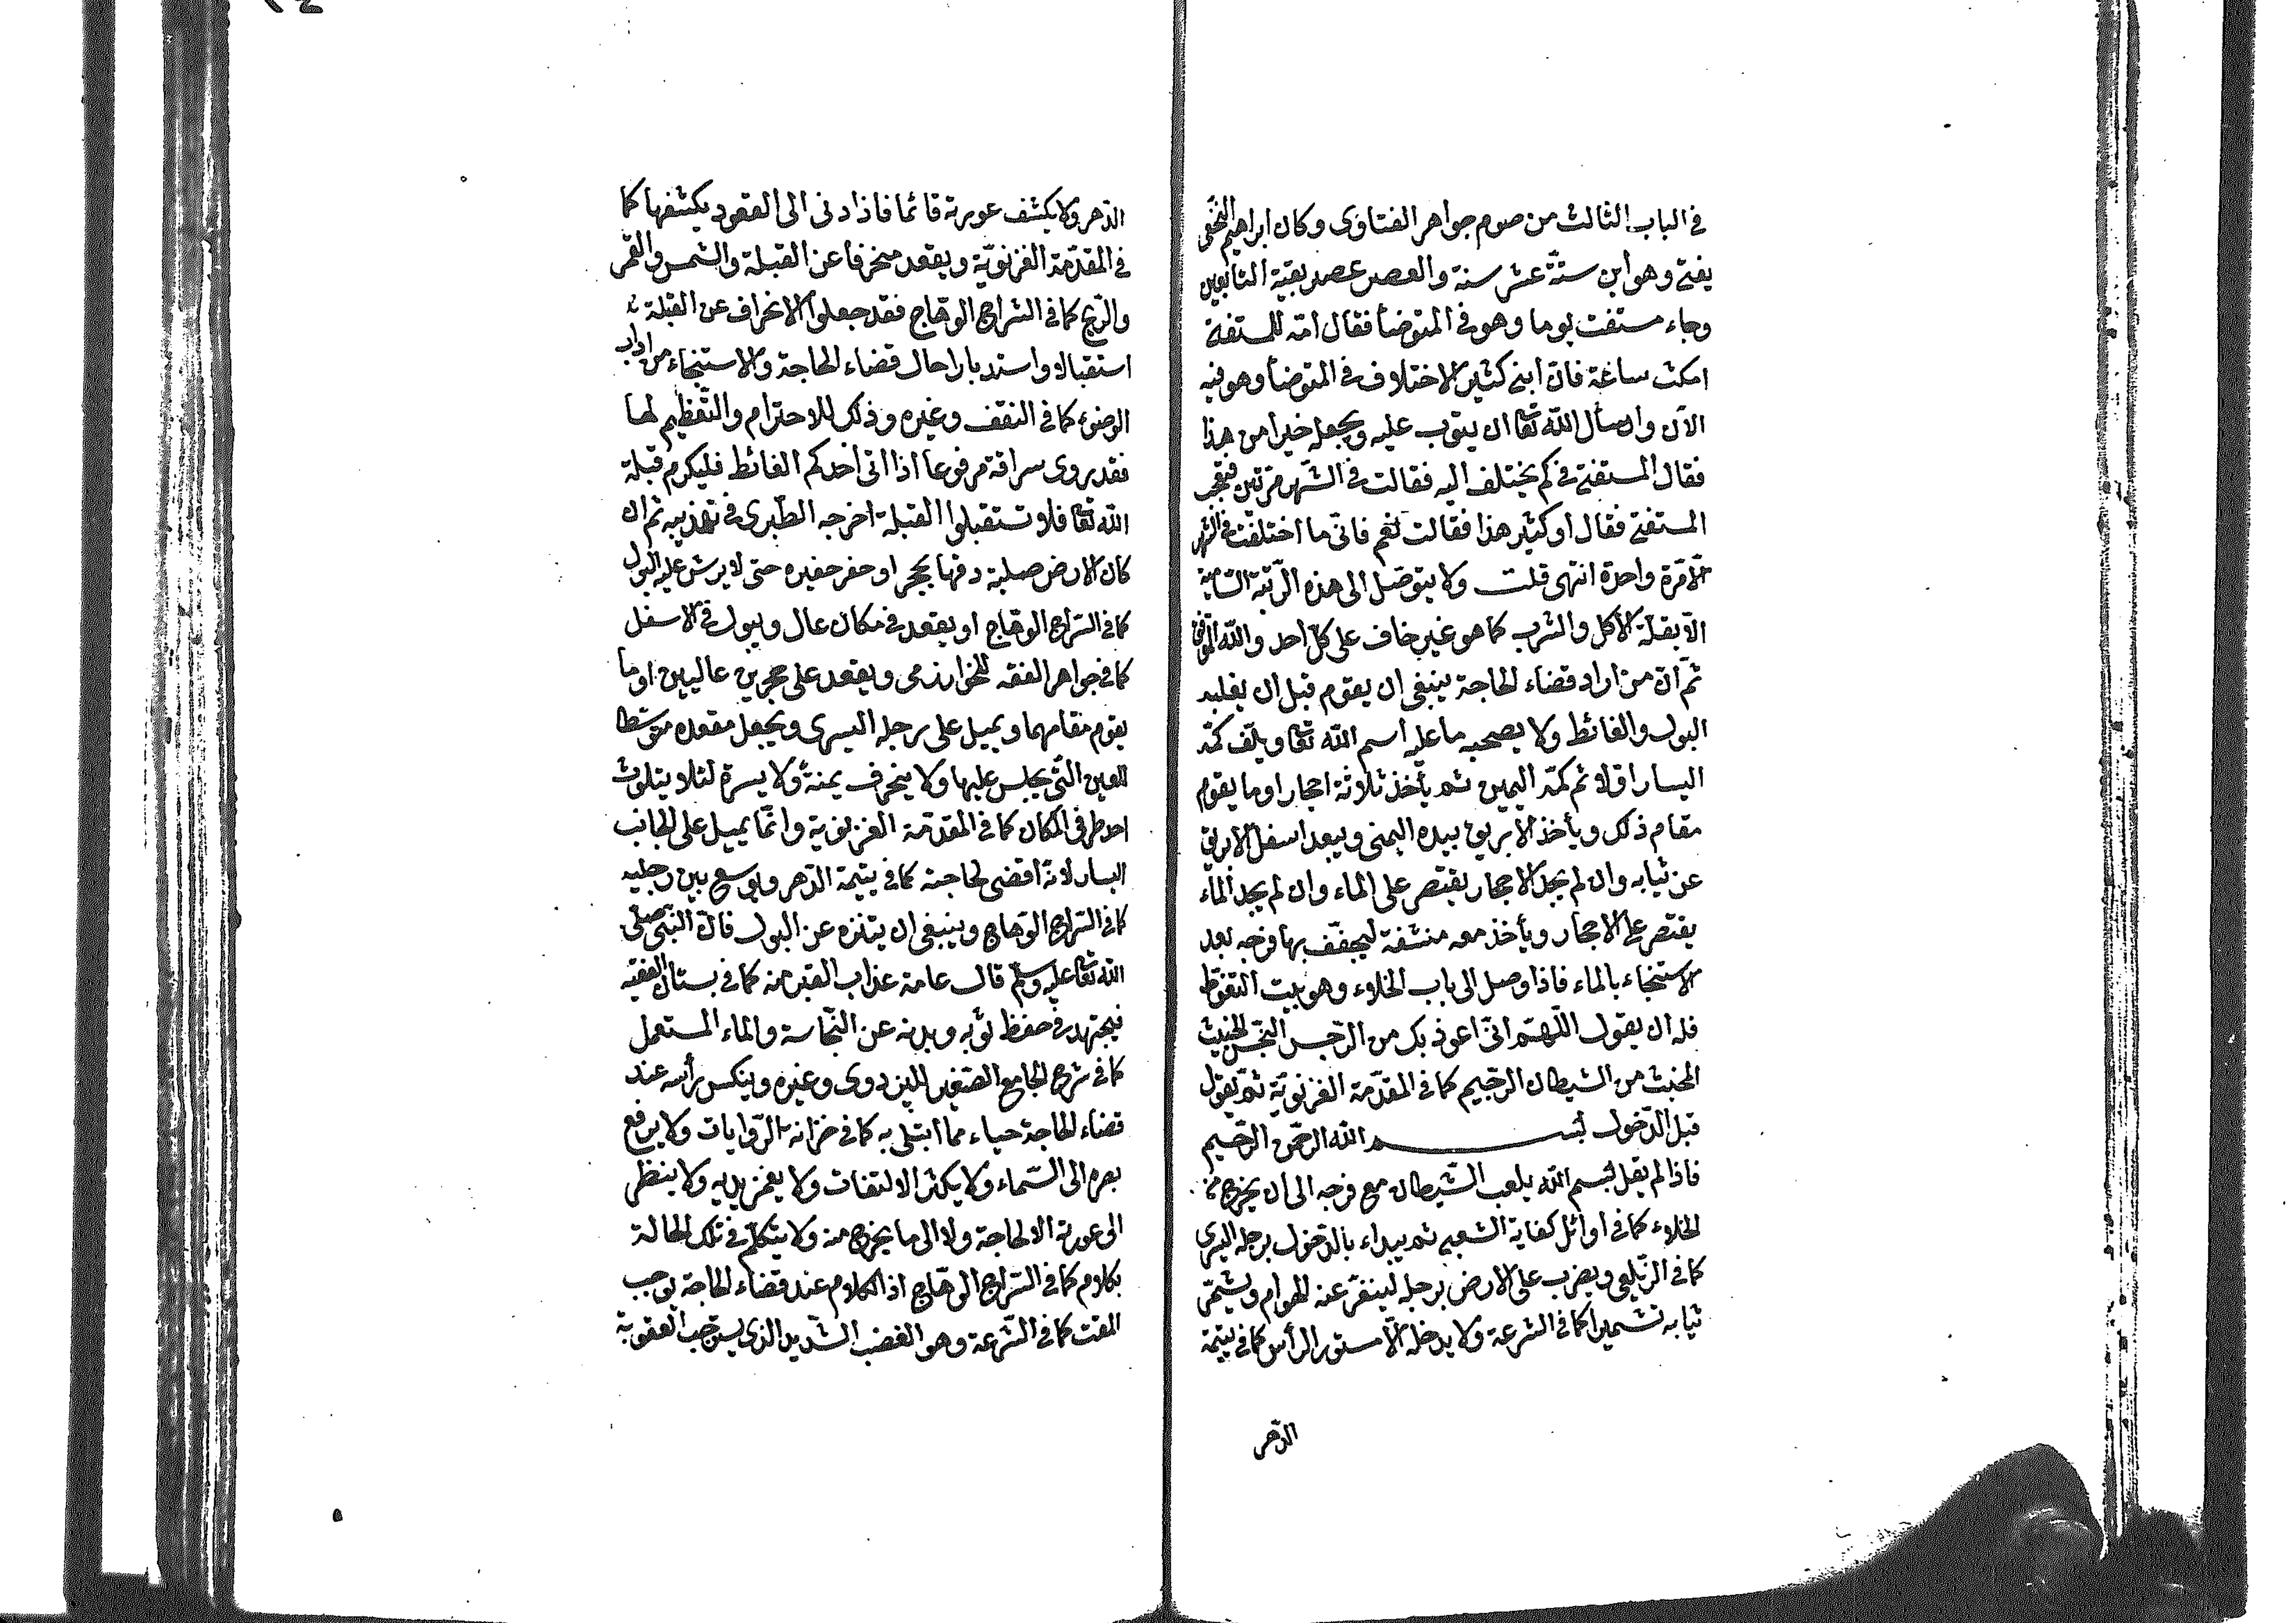 في الباب الثالث من صوم جواهر الفتاوى وكان ابراهيم النخعي
يفتي وهو ابن ستة عشر سنة والعصر عصر بقية التابعين
وجاء مستفت يوما وهو في المتوضأ فقال امّه للمستفتي
امكث ساعة فان ابني كثير الاختلاف في المتوضأ وهو فيه
الآن وانا سأل الله تعا ان يتوب عليه ويجعله خيرا من هذا
فقال المستفتي في كم يختلف اليه فقالت في الشهر مرّتين فتعجب
المستفتي فقال او كثير هذا فقالت نعم فاني ما اختلفت في الشهر
الّا مرّة واحدة انتهى قلت ولا يتوصّل الى هذه الرّتبة السّامية
الّا بقلّة الأكل والشرب كما هو غير خاف على كلّ احد والله الموفق
ثمّ انّ من اراد قضاء الحاجة ينبغي ان يقوم قبل ان يغلبه
البول والغائط ولا يصحبه ما عليه اسم الله تعا ويلفّ كمّه
اليسار اوّلا ثم كمّه اليمين ثم يأخذ ثلاثة احجار او ما يقوم
مقام ذلك ويأخذ الابريق بيده اليمنى ويبعد اسفل الابريق
عن ثيابه وان لم يجد الاحجار يقتصر على الماء وان لم يجد الماء
يقتصر على الاحجار ويأخذ معه منشفة ليجفّف بها فرجه بعد
الاستنجاء بالماء فاذا وصل الى باب الخلاء وهو بيت التغوّط
فله ان يقول اللّهمّ انّي اعوذ بك من الرّجس النّجس الخبيث
المخبث من الشيطان الرّجيم كما في المقدّمة الغزنويّة ثمّ يقول
قبل الدّخول بسم الله الرحمن الرّحيم
فاذا لم يقل بسم الله يلعب الشّيطان مع فرجه الى ان يخرج من
الخلاء كما في اوائل كفاية الشعبي ثم يبداء بالدّخول برجله اليسرى
كما في الزّيلعي ويضرب على الارض برجله لينفّر عنه الهوام ويشمّر
ثيابه تشميرا كما في الشرعة ولا يدخله الّا مستور الرأس كما في يتيمة
الدّهر
الدّهر ولا يكشف عورته قائما فاذا دنى الى القعود يكشفها كما
في المقدّمة الغزنويّة ويقعد منحرفا عن القبلة والشمس والقمر
والرّيح كما في السّراج الوهّاج فقد جعلوا الانحراف عن القبلة
استقبالا واستدبارا حال قضاء الحاجة والاستنجاء من اداب
الوضوء كما في النقف وغيره وذلك للاحترام والتّعظيم لها
فقد روى سراقة مرفوعا اذا اتى احدكم الغائط فليكرم قبلة
الله تعا فلا تستقبلوا القبلة اخرجه الطّبري في تهذيبه ثم ان
كان الارض صلبة دقها بحجر او حفر حفيرة حتى لا يرش عليه البول
كما في السّراج الوهّاج او يقعد في مكان عال ويبول في الاسفل
كما في جواهر الفقه للخوارزمي ويقعد على حجرين عاليين او ما
يقوم مقامهما ويميل على رجله اليسرى ويجعل مقعده متوسّطا
العين التّي يجلس عليها ولا ينحرف يمنة ولا يسرة لئلا يتلوث
احد طرفي المكان كما في المقدّمة الغزنوية وانّما يميل على الجانب
اليسار لانّه اقضى لحاجته كما في يتيمة الدّهر ويوسع بين رجليه
كما في السّراج الوهّاج وينبغي ان يتنزه عن البول فانّ النّبيّ صلّى
الله تعا عليه وسلّم قال عامة عذاب القبر منه كما في بستان الفقيه
فيجتهد في حفظ ثوبه وبدنه عن النّجاسة والماء المستعمل
كما في شرح الجامع الصّغير للبزدوى وغيره وينكس رأسه عند
قضاء الحاجة حياء ممّا ابتلي به كما في خزانة الرّوايات ولا يرفع
بصره الى السّماء ولا يكثر الالتفات ولا يغمز بيديه ولا ينظر
الى عورته الا لحاجة ولا الى ما يخرج منه ولا يتكلّم في تلك الحالة
بكلام كما في السّراج الوهّاج اذ الكلام عند قضاء الحاجة يوجب
المقت كما في الشّرعة وهو الغضب الشّديد الذي يستوجب العقوبة